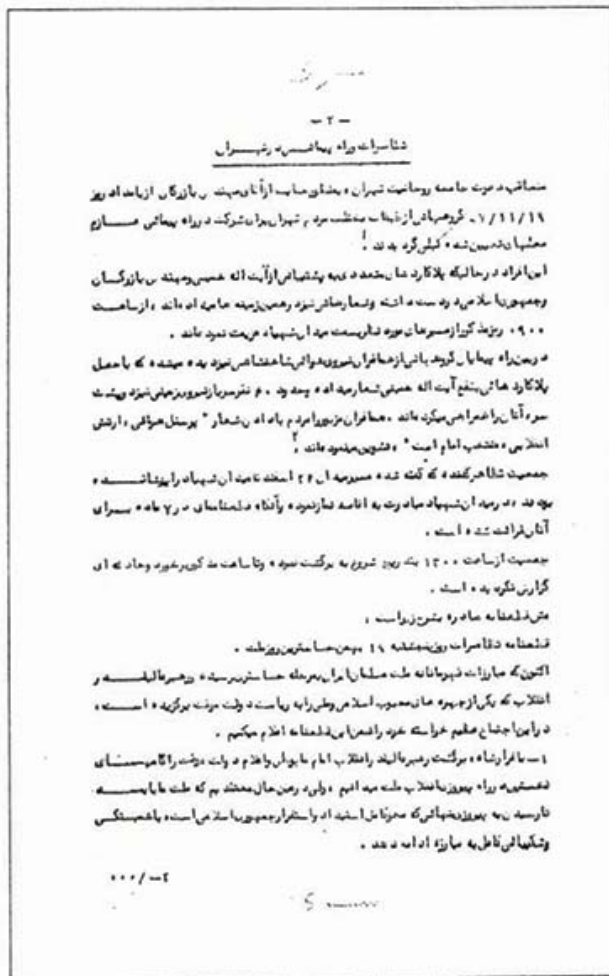 -۲-
تظاهرات و راه پیمائی در تهران
متعاقب دعوت جامعه روحانیت تهران بمنظور حمایت از آقای مهندس بازرگان از بامداد روز
گروههائی از طبقات مختلف مردم تهران برای شرکت در راه پیمائی عازم
محلهای تعیین شده گردیدند
این افراد در حالیکه پلاکاردهای متعددی به پشتیبانی از آیت اله خمینی و مهندس بازرگان
و جمهوری اسلامی در دست داشته و شعارهائی نیز در همین زمینه میداده‌اند، از ساعت
۰۹۰۰ روز مذکور از مسیرهای مورد نظر بسمت میدان شهیاد عزیمت نموده‌اند.
در بین راه پیمایان گروههائی از همافران نیروی هوائی شاهنشاهی نیز دیده میشده که با حمل
پلاکاردهائی بنفع آیت اله خمینی شعار میداده و حدود نفر سرباز نیروی زمینی نیز در پشت
سر آنان را همراهی میکرده‌اند. همافران مزبور را مردم با دادن شعار "پرسنل هوائی، ارتش
انقلابی، منتخب امام است" تشویق مینموده‌اند.
جمعیت تظاهر کننده که مسیر میدان ۲۴ اسفند تا میدان شهیاد را پوشانده
بودند، در میدان شهیاد مبادرت به اقامه نماز نموده و آنگاه قطعنامه‌ای در ۷ ماده برای
آنان قرائت شده است.
جمعیت از ساعت ۱۳۰۰ شروع به برگشت نموده و تا ساعت مذکور برخورد و حادثه ای
گزارش نگردیده است.
متن قطعنامه صادره بشرح زیر است:
قطعنامه تظاهرات روز پنجشنبه ۱۹ بهمن حساسترین روز ملت.
اکنون که مبارزات قهرمانانه ملت مسلمان ایران بمرحله حساستری رسیده و رهبر عالیقدر
انقلاب که یکی از چهره های محبوب اسلامی و ملی را به ریاست دولت موقت برگزیده است،
در این اجتماع عظیم خواسته خود را ضمن این قطعنامه اعلام میکنیم.
۱- با فرار شاه، برگشت رهبر عالیقدر انقلاب امام خمینی و اعلام دولت موقت را گامهای
نخستین در راه پیروزی انقلاب ملت میدانیم ولی در عین حال معتقدیم که ملت ما باید
تا رسیدن به پیروزی نهائی که محو کامل استبداد و استقرار جمهوری اسلامی است، با همبستگی
و شکیبائی کامل به مبارزه ادامه دهند.
۲-/۰۰۰